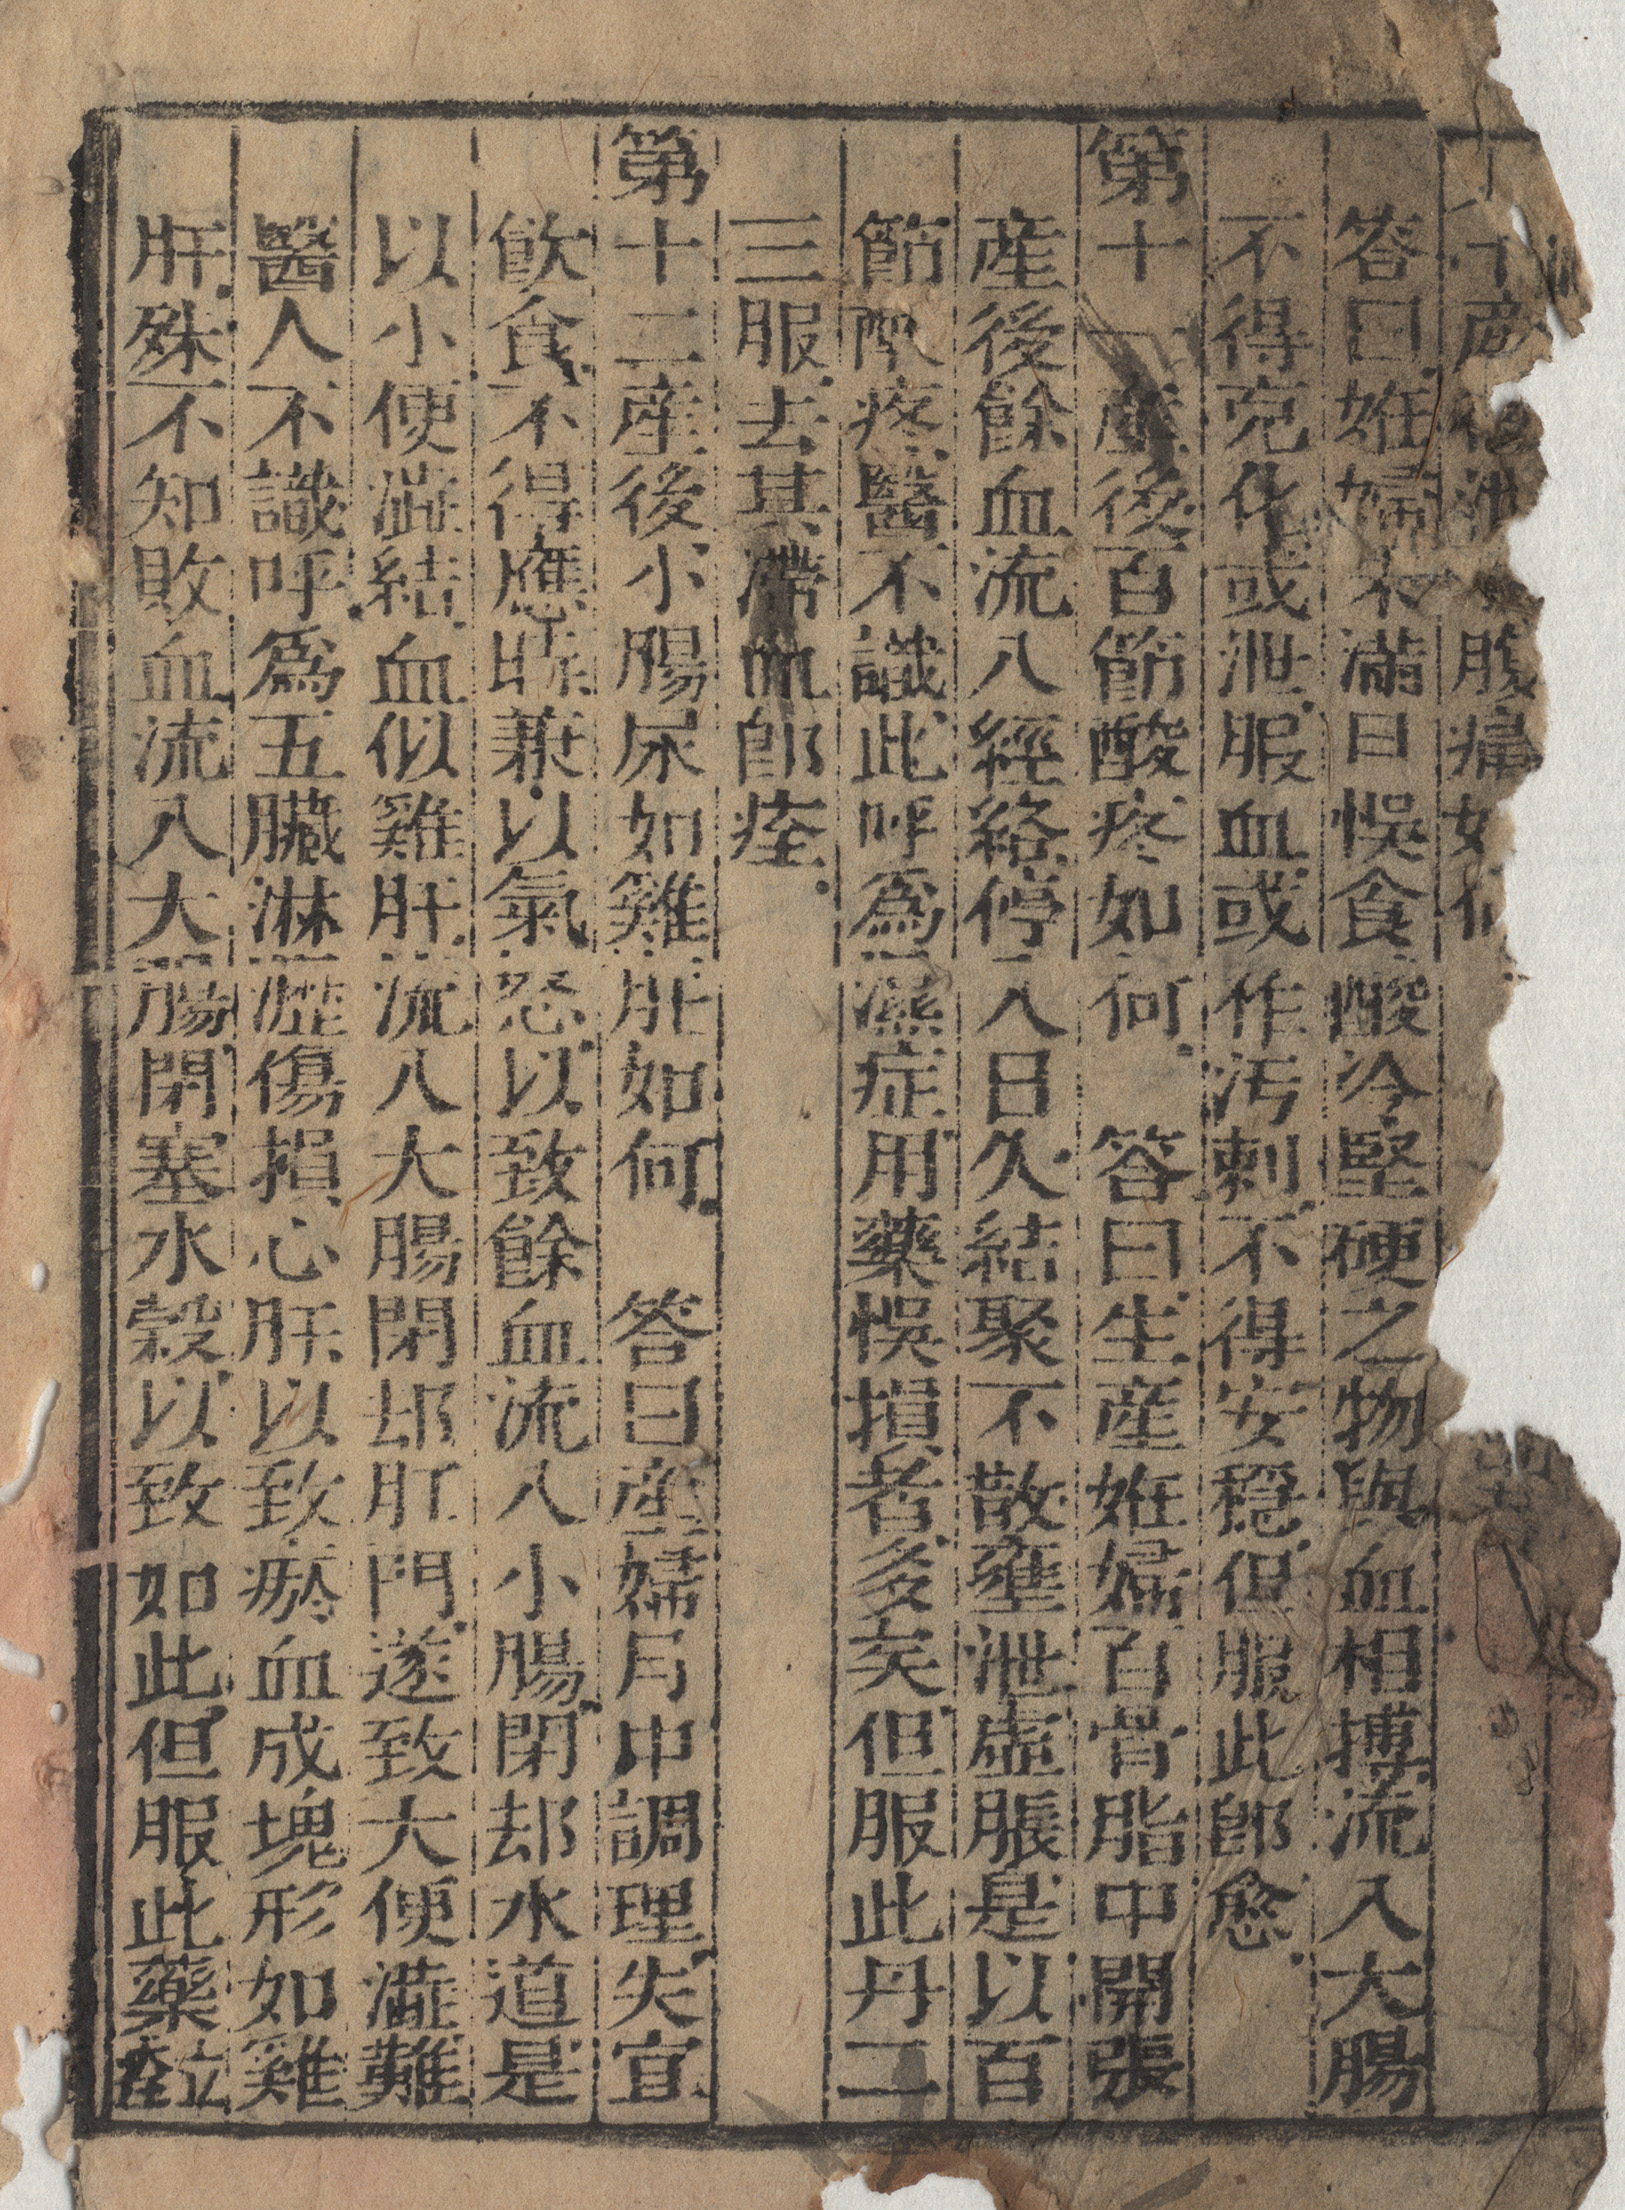 十産後泄腹痛如何
答曰姙婦未滿日悞食酸冷堅硬之物與血相搏流入大腸
不得克化或泄服血或作汚刺不得安穩但服此即愈
第十一産後百節酸疼如何　答曰生産姙婦百骨脂中開張
産後餘血流入經絡停入日久結聚不散壅泄虛脹是以百
節酸疼醫不識此呼爲濕症用藥悞損者多矣但服此丹二
三服去其滯血即痊
第十二産後小腸尿如雞肝如何　答曰産婦月中調理失宜
飲食不得應時兼以氣怒以致餘血流入小腸閉却水道是
以小便澁結血似雞肝流入大腸閉却肛門遂致大便澁難
醫人不識呼爲五臟淋澁傷損心肝以致瘀血成塊形如雞
肝殊不知敗血流入大腸閉塞水穀以致如此但服此藥立痊